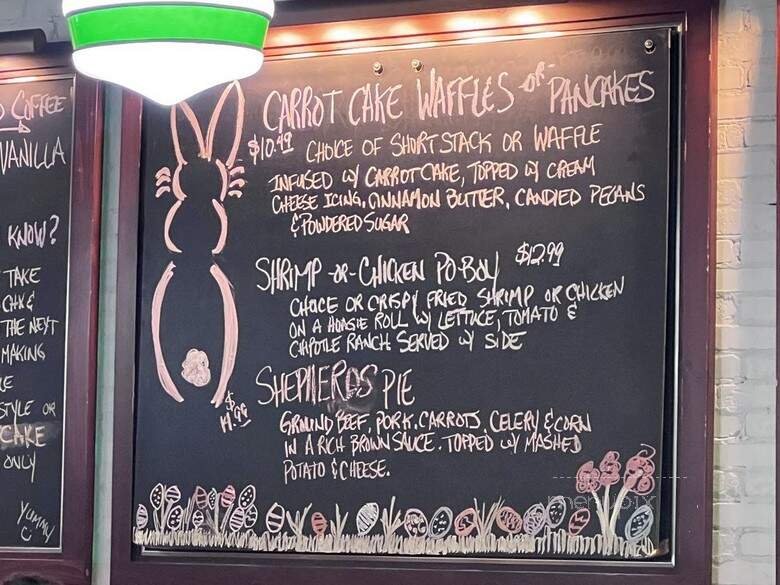 COFFEE
VANILLA
KNOW?
TAKE
THE NEXT
MAKING
STYLE OR
CAKE
ONLY
YUMMY
CARROT CAKE WAFFLES -OR- PANCAKES
$10.49 CHOICE OF SHORT STACK OR WAFFLE
INFUSED W/ CARROT CAKE, TOPPED W/ CREAM
CHEESE ICING, CINNAMON BUTTER, CANDIED PECANS
& POWDERED SUGAR
SHRIMP -OR- CHICKEN PO-BOY $12.99
CHOICE OR CRISPY FRIED SHRIMP OR CHICKEN
ON A HOAGIE ROLL W/ LETTUCE, TOMATO &
CHIPOTLE RANCH SERVED W/ SIDE
SHEPHERDS PIE
$14.99
GROUND BEEF, PORK, CARROTS, CELERY & CORN
IN A RICH BROWN SAUCE. TOPPED W/ MASHED
POTATO & CHEESE.
menupix